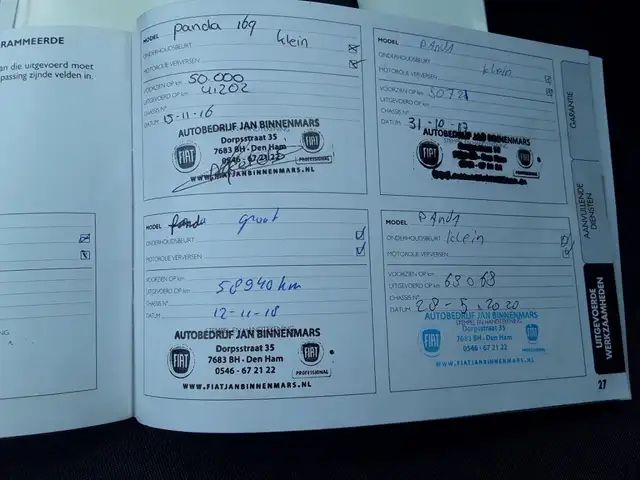 RAMMEERDE
an die uitgevoerd moet
passing zijnde velden in.
MODEL panda 169
klein
ONDERHOUDSBEURT
MOTOROLIE VERVERSEN
VOORZIEN OP km 50.000
UITGEVOERD OP km 41.202
CHASSIS N°
DATUM 15-11-16
AUTOBEDRIJF JAN BINNENMARS
Dorpsstraat 35
7683 BH - Den Ham
0546 - 67 21 22
FIAT
PROFESSIONAL
WWW.FIATJANBINNENMARS.NL
MODEL PANDA
klein
ONDERHOUDSBEURT
MOTOROLIE VERVERSEN
VOORZIEN OP km
UITGEVOERD OP km
CHASSIS N°
DATUM 31-10-17
AUTOBEDRIJF JAN BINNENMARS
FIAT
PROFESSIONAL
MODEL panda groot
ONDERHOUDSBEURT
MOTOROLIE VERVERSEN
VOORZIEN OP km
UITGEVOERD OP km 58940 km
CHASSIS N°
DATUM 12-11-18
AUTOBEDRIJF JAN BINNENMARS
Dorpsstraat 35
7683 BH - Den Ham
0546 - 67 21 22
FIAT
FIAT
PROFESSIONAL
WWW.FIATJANBINNENMARS.NL
MODEL PANDA
ONDERHOUDSBEURT klein
MOTOROLIE VERVERSEN
VOORZIEN OP km
UITGEVOERD OP km 63068
CHASSIS N°
DATUM 28-5.2020
AUTOBEDRIJF JAN BINNENMARS
STEMPEL EN HANDTEKENING
Dorpsstraat 35
7683 BH - Den Ham
0546 - 67 21 22
WWW.FIATJANBINNENMARS.NL
GARANTIE
AANVULLENDE
DIENSTEN
UITGEVOERDE
WERKZAAMHEDEN
27